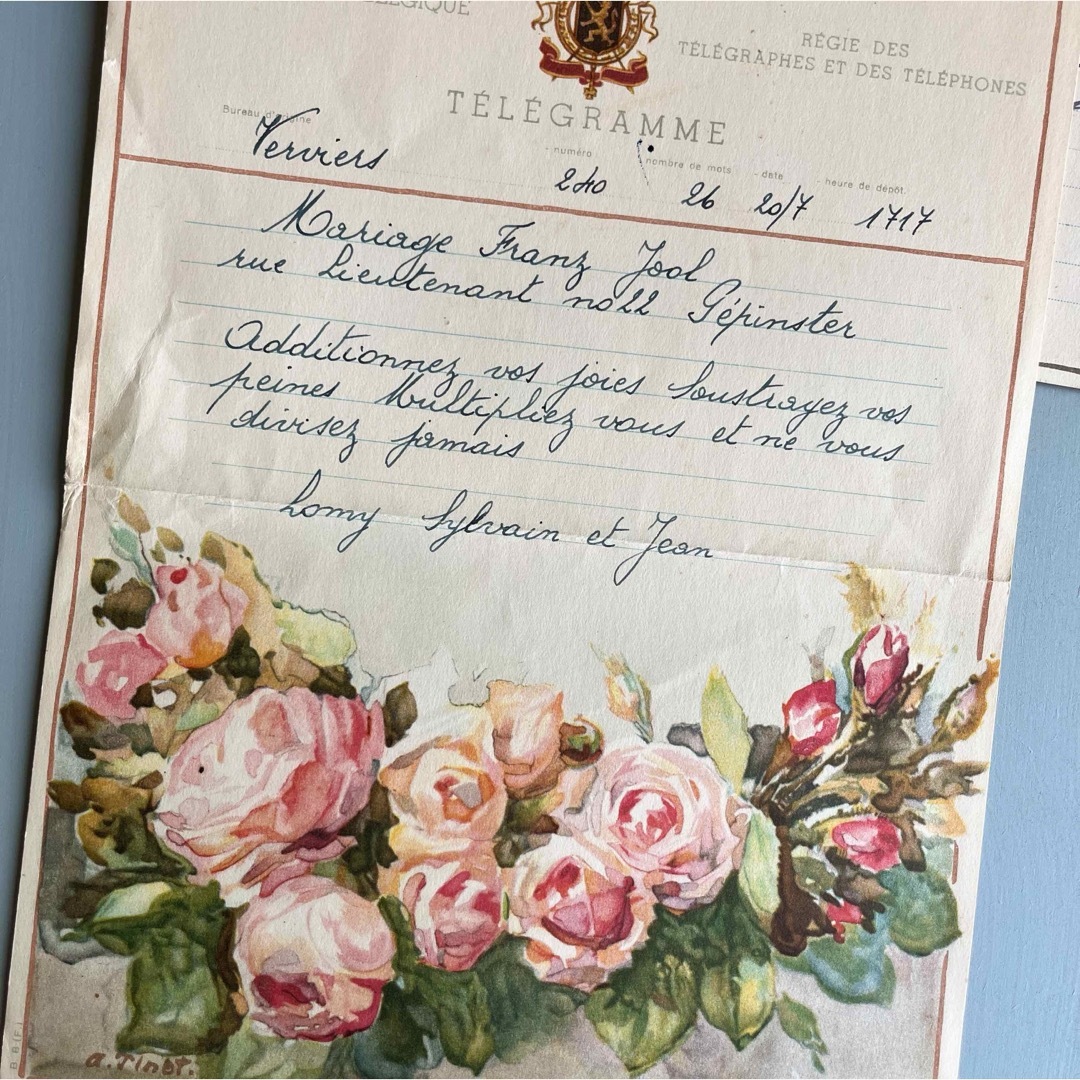 BELGIQUE
RÉGIE DES
TÉLÉGRAPHES ET DES TÉLÉPHONES
TÉLÉGRAMME
Bureau d'origine
Verviers
numéro
nombre de mots
date
heure de dépôt.
240
26
20/7
1717
Mariage Franz Jool
rue Lieutenant no 22 Pépinster
Additionnez vos joies Soustrayez vos
peines Multipliez vous et ne vous
divisez jamais
Lomy Sylvain et Jean